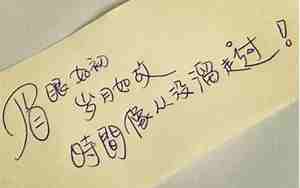 眉眼如初
岁月如故
時間像从没溜走过！